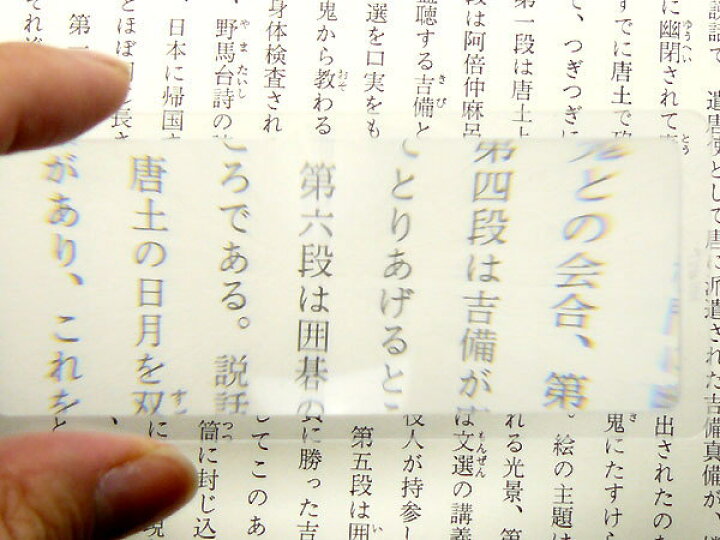 説話で、遣唐使として唐に派遣された吉備真備が、
に幽閉されて
すでに唐土で
て、つぎつぎに
第一段は唐土
段は阿倍仲麻呂
聴する吉備と
選を口実をも
鬼から教わる
身体検査され
、野馬台詩の
日本に帰国
とほぼ同じ長さ
第一
鬼との会合、第
第四段は吉備が
とりあげるとこ
第六段は囲碁の
ころである。説話
唐土の日月を双
があり、これを
出されたの
鬼にたすけら
。絵の主題は
れる光景、第
は文選の講義
役人が持参し
第五段は囲
に勝った吉
してこのあ
筒に封じ込
に